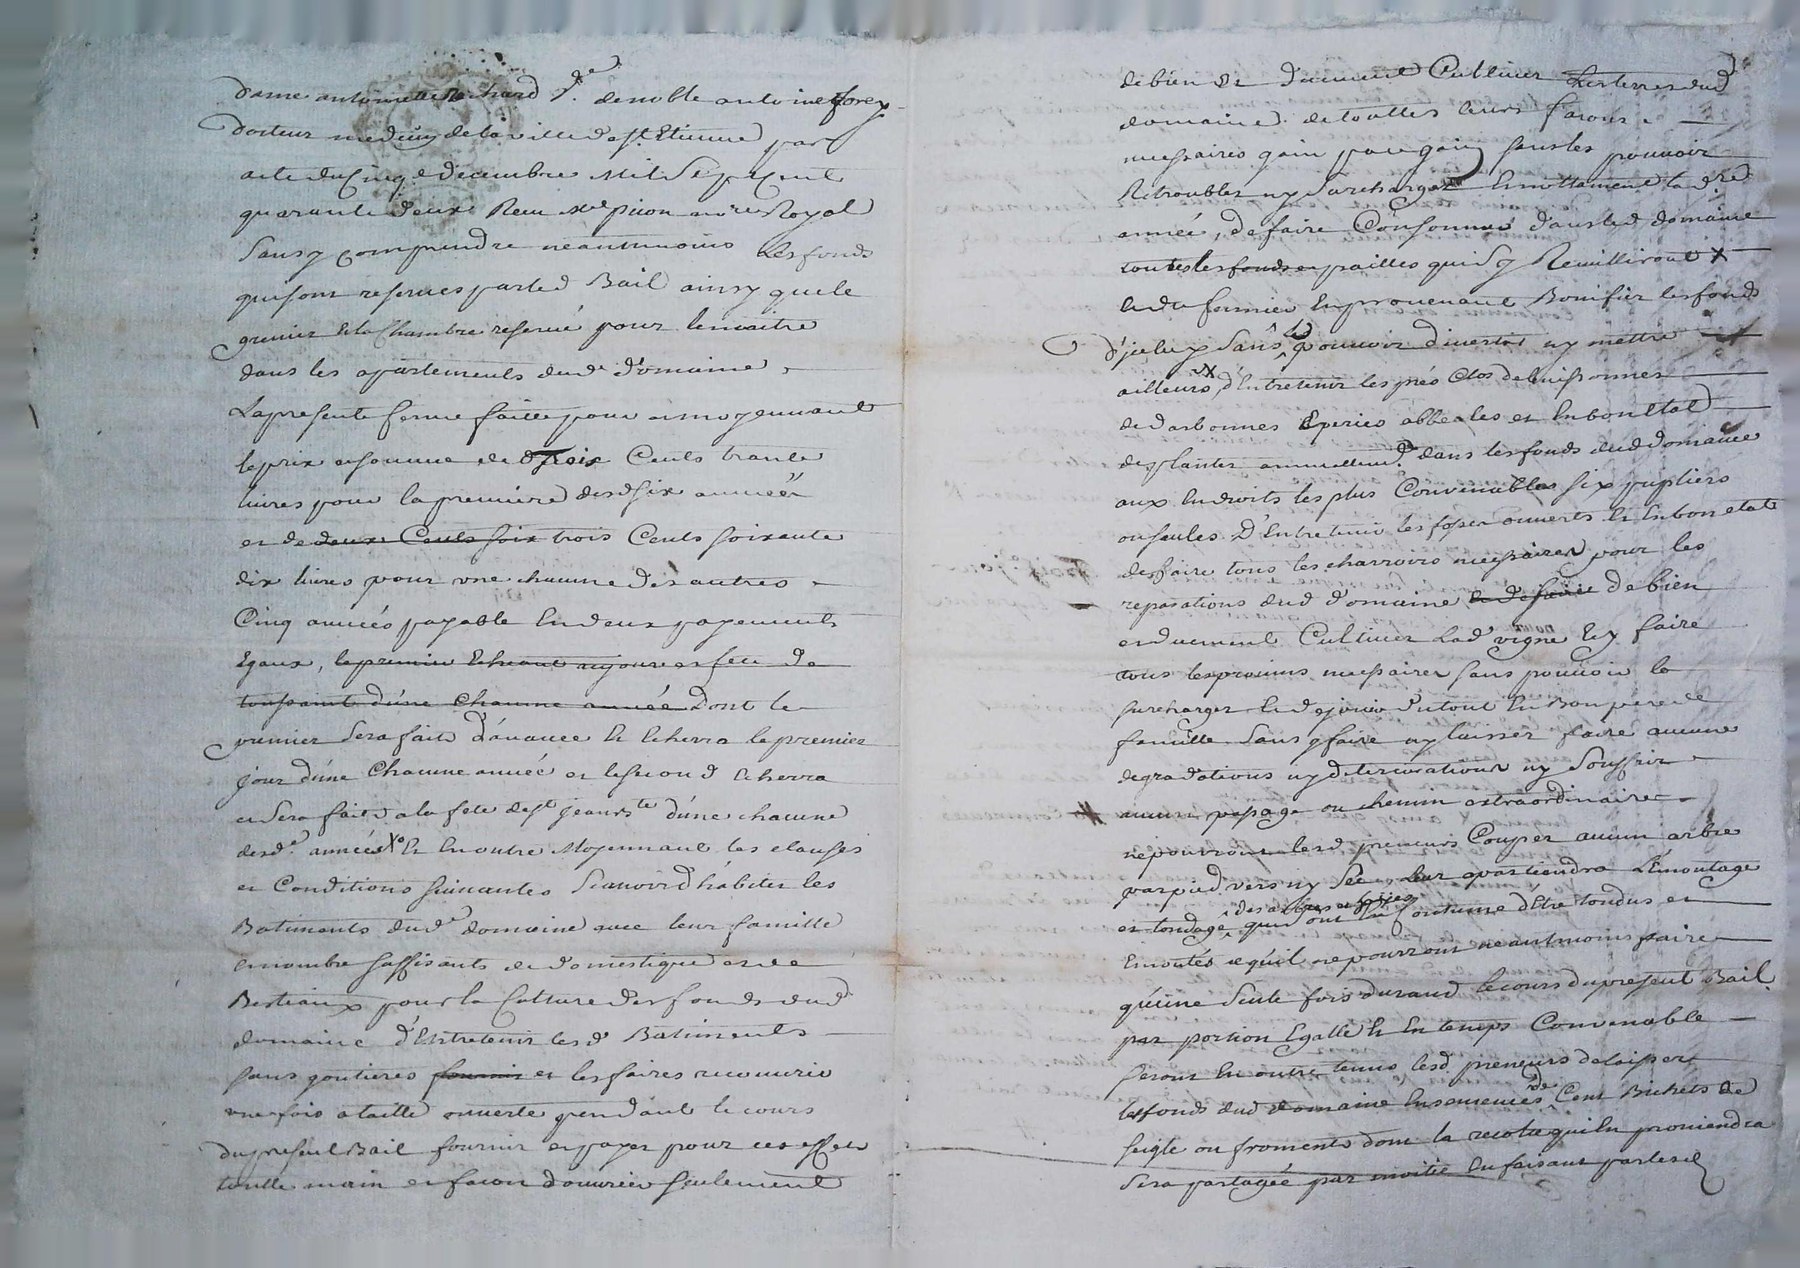 dame antoinette Richard Vve. de noble antoine forey
docteur medecin de la ville de st. Etienne par
acte du Cinq e decembre Mil Sept Cent
quarante deux Receu Me pition notre Royal
Sans y comprendre neantmoins Les fonds
qui sont reserves par led Bail ainsy que le
grenier et la Chambre reservé pour le maitre
dans les apartements dudt. domaine
La presente ferme faitte pour et moyennant
le prix et somme de Trois Cents trante
livres pour la premiere desd six année
et de deux Cents soix trois Cents soixante
dix livres pour vne chacune des autres
Cinq années payable En deux payements
Egaux, le premier Echeant au jour et fete de
toussaint d'une Chacune année Dont le
premier Sera fait d'avance Et Echerra le premier
jour d'une Chacune année et le second Echerra
et Sera fait a la fete de st jean Bte d'une chacune
desd. années Et En outre Moyennant les clauses
et Conditions suivantes Scavoir d'habiter les
Batiments dudt. domaine avec leur famille
et nombre suffisants de domestique et de
Bestiaux pour la Culture des fonds dud
domaine d'Entretenir lesd Batiments
sans goutieres fournir et les faires recouvrir
vne fois a taille ouverte pendant le cours
du present Bail fournir et payer pour cet effet
toutte main et facon d'ouvrier seulement
de bien et duement Cultiver Les terres dud
domaine de touttes leurs facons
necessaires gain pour gain sans les pouvoir
Retroubler ny Surcharger Ennottament la dre
année, de faire Consommer dans led domaine
toutes les fonds et pailles qui Sy Reuilliront X
et du fumier En provenant Bonifier les fonds
d'jceluy Sans le pouvoir divertir ny mettre
ailleurs X, d'Entretenir les prés Clos de buissonnes
de d'arbonnes Eperies abbeales et En bon Etat
de planter annuellemt. dans les fonds dud domaine
aux Endroits les plus Convenables six pupliers
ou saules D'Entretenir les fosses ouverts et En bon etat
de faire tous les charrois necessaires pour les
reparations dud domaine et de faire de bien
et duement Cultiver Lad vigne Et y faire
tous les provins necessaires sans pouvoir la
surcharger Et de jouir du tout En Bon pere de
famille Sans y faire ny laisser faire aucune
degradations ny deteriorations ny Souffrir
aucun passage ou chemin extraordinaire
ne pourront lesd preneurs Couper aucun arbre
par pied vers ny Sec, Leur apartiendra L'Emontage
des arbres et hayes
et tondage qui ont En Coutume d'Etre tondus et
Emontés ce qu'il ne pourront neantmoins faire
qu'une Seule fois durant le cours du present Bail
par portion Egalle Et En temps Convenable
Seront En outre tenus lesd preneurs de laisser
les fonds dud domaine Ensemencés de Cent Bichets de
seigle ou froments dont la recolte qui En proviendra
Sera partagée par moitié En faisant par lesd